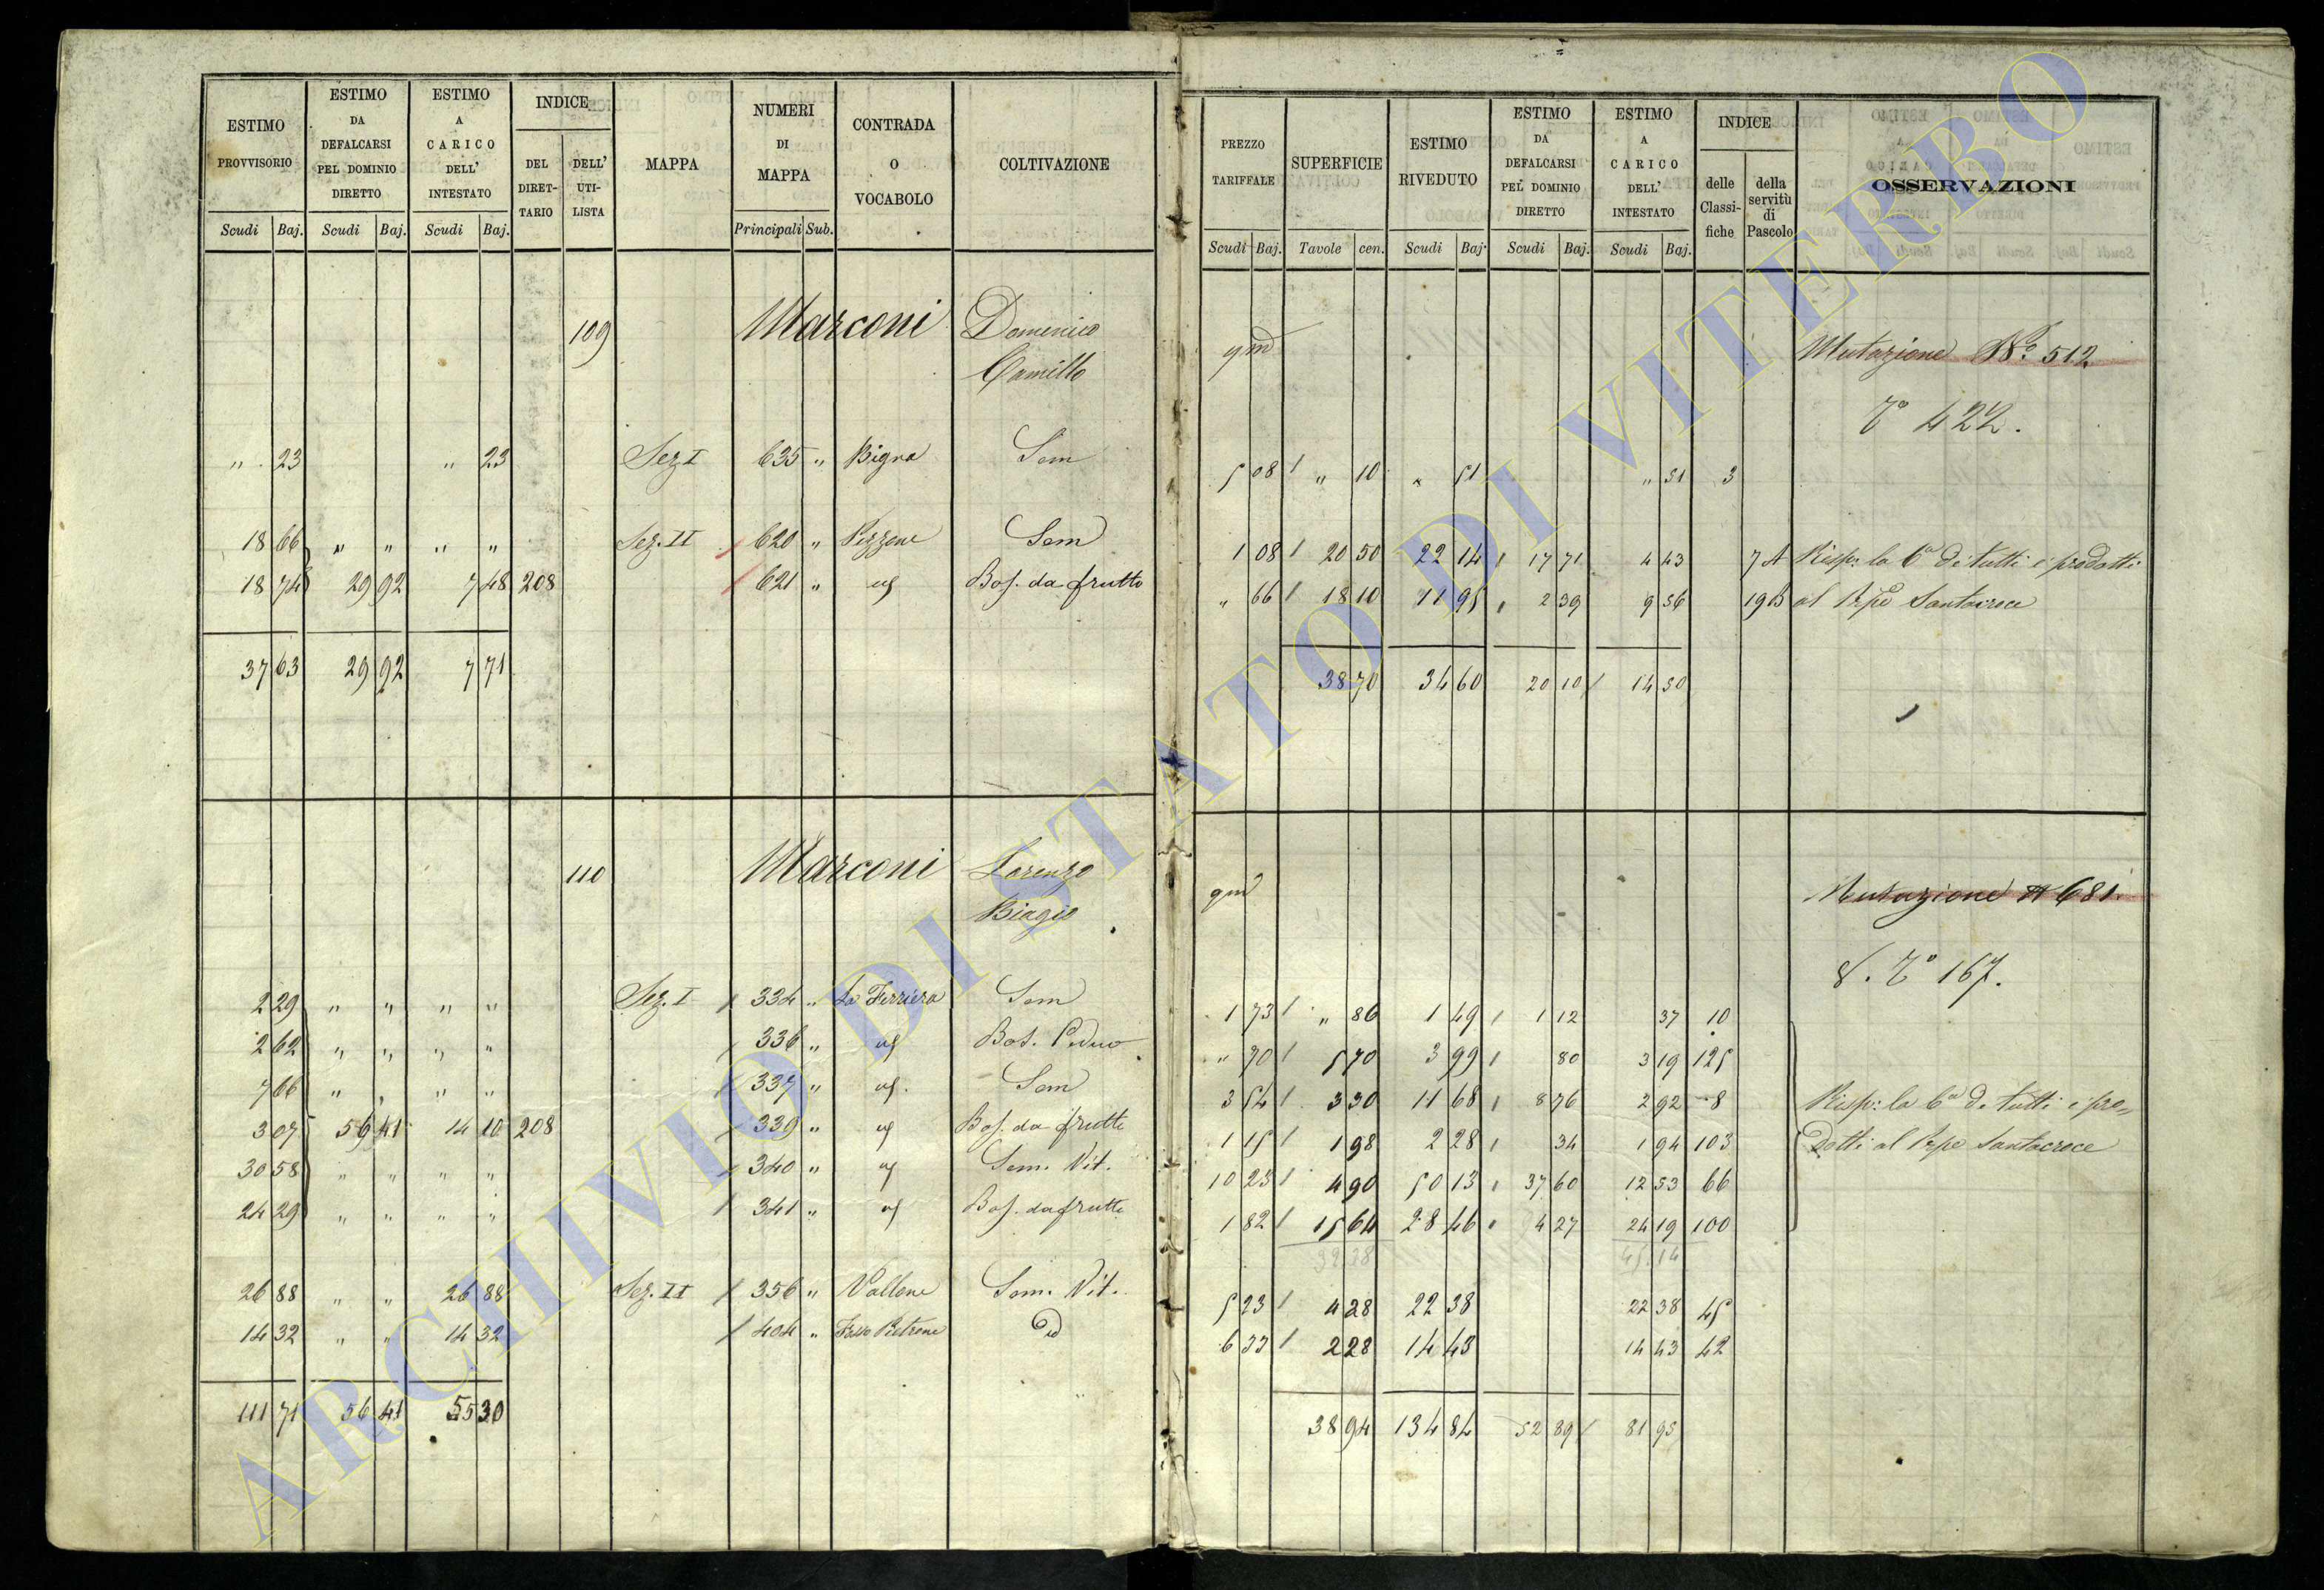 ESTIMO PROVVISORIO | ESTIMO DA DEFALCARSI PEL DOMINIO DIRETTO | ESTIMO A CARICO DELL' INTESTATO | INDICE | MAPPA | NUMERI DI MAPPA | CONTRADA O VOCABOLO | COLTIVAZIONE
DEL DIRET-TARIO | DELL' UTI-LISTA
Scudi | Baj. | Scudi | Baj. | Scudi | Baj. | Principali | Sub.
109 Marconi Domenico
Camillo
" 23 " 23 Sez. I 635 " Bigna Sem
18 66 " " " " Sez. II 620 " Pezzone Sem
18 74 29 92 7 48 208 621 " Bos. da frutto
37 63 29 92 7 71
110 Marconi Lorenzo
Biagio
2 29 " " " " Sez. I 334 " La Ferriera Sem
2 62 " " " " 336 " Bos. Ceduo
7 66 " " " " 337 " Sem
3 07 56 41 14 10 208 339 " Bos. da frutto
30 58 " " " " 340 " Sem. Vit.
24 29 " " " " 341 " Bos. da frutto
26 88 " " 26 88 Sez. II 356 " Vallone Sem. Vit.
14 32 " " 14 32 404 "
111 71 56 41 55 30
PREZZO TARIFFALE | SUPERFICIE | ESTIMO RIVEDUTO | ESTIMO DA DEFALCARSI PEL DOMINIO DIRETTO | ESTIMO A CARICO DELL' INTESTATO | INDICE | OSSERVAZIONI
delle Classi-fiche | della servitù di Pascolo
Scudi | Baj. | Tavole | cen. | Scudi | Baj. | Scudi | Baj. | Scudi | Baj.
qm Mutazione No. 512
To 422.
5 08 " 10 " 51 " 51 3
1 08 20 50 22 14 17 71 4 43 7 A Risp: la 6a di tutti i prodotti
" 66 18 10 11 95 2 39 9 56 19 B al Pnpe Santacroce
38 70 34 60 20 10 14 50
qm Mutazione N 681.
8. To 167.
1 73 " 86 1 49 1 12 37 10
" 70 5 70 3 99 80 3 19 125
3 54 3 30 11 68 8 76 2 92 8 Risp: la 6a di tutti i pro=
1 15 1 98 2 28 34 1 94 103 dotti al Pnpe Santacroce
10 23 4 90 50 13 37 60 12 53 66
1 82 15 64 28 46 4 27 24 19 100
32.38 45.14
5 23 4 28 22 38 22 38 45
6 33 2 28 14 43 14 43 42
38 94 134 84 52 89 81 95
ARCHIVIO DI STATO DI VITERBO